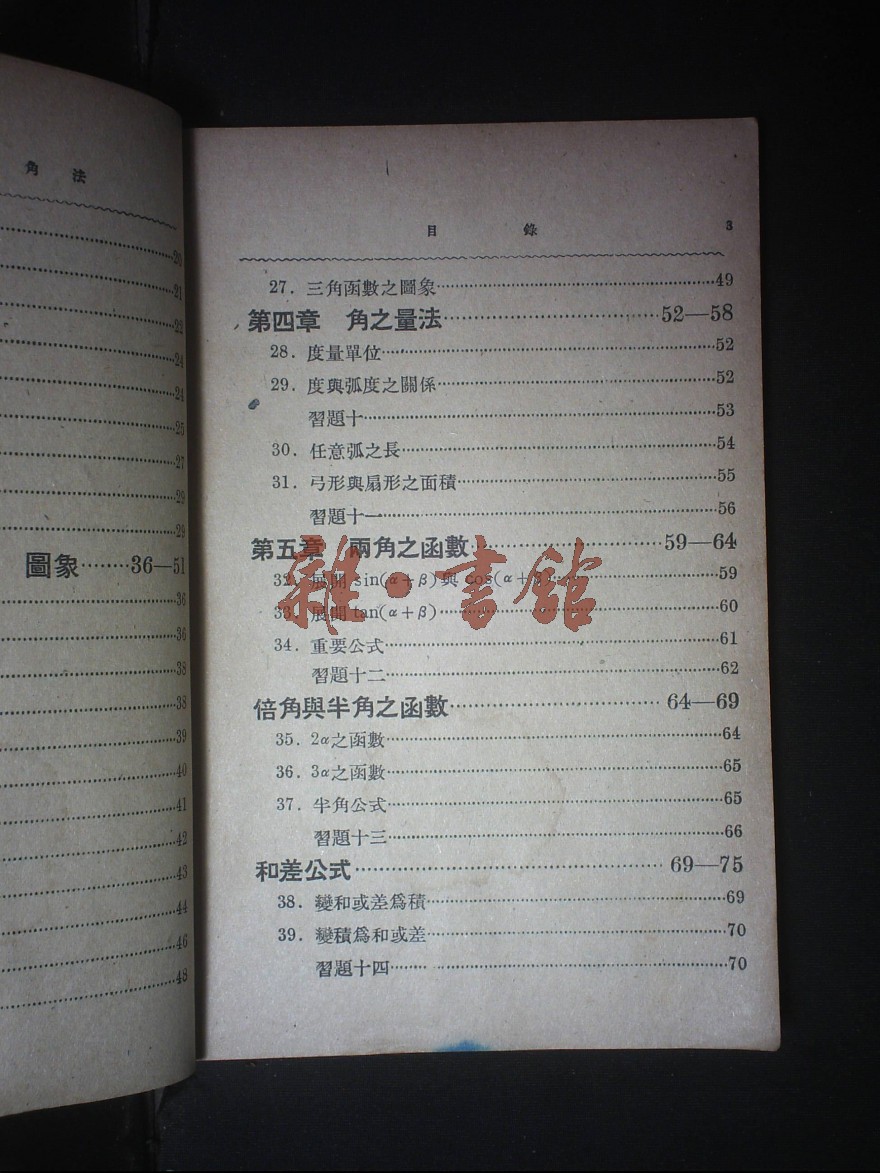 角 法
20
21
22
24
24
25
27
29
29
圖象········36—51
36
36
38
38
39
40
41
42
43
44
46
48
目 錄 3
27. 三角函數之圖象········49
第四章 角之量法········52—58
28. 度量單位········52
29. 度與弧度之關係········52
習題十········53
30. 任意弧之長········54
31. 弓形與扇形之面積········55
習題十一········56
第五章 兩角之函數········59—64
32. 展開 sin(α+β)與 cos(α+β)········59
33. 展開 tan(α+β)········60
34. 重要公式········61
習題十二········62
倍角與半角之函數········64—69
35. 2α之函數········64
36. 3α之函數········65
37. 半角公式········65
習題十三········66
和差公式········69—75
38. 變和或差爲積········69
39. 變積爲和或差········70
習題十四········70
雜·書館